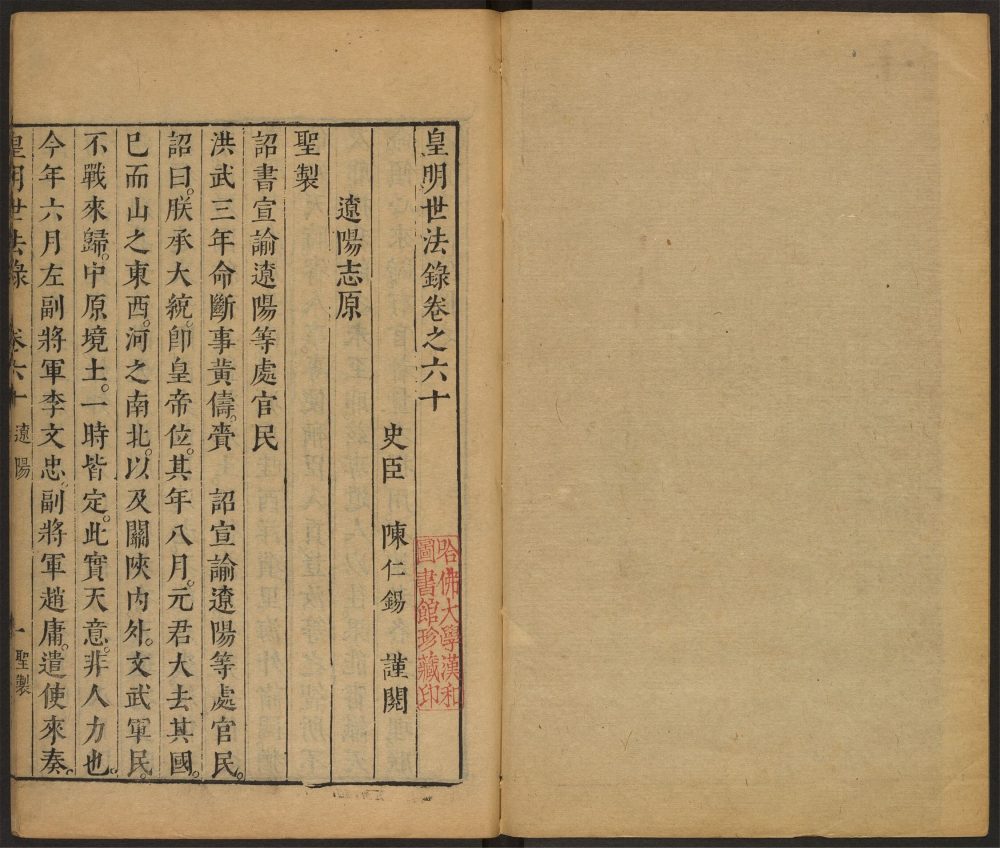 皇明世法錄卷之六十
史臣 陳仁錫 謹閱
遼陽志原
聖製
詔書宣諭遼陽等處官民
洪武三年命斷事黃儔。賫 詔宣諭遼陽等處官民。
詔曰。朕承大統。卽皇帝位。其年八月。元君大去其國。
巳而山之東西。河之南北。以及關陝內外。文武軍民。
不戰來歸。中原境土。一時皆定。此實天意。非人力也。
今年六月左副將軍李文忠。副將軍趙庸。遣使來奏。
皇明世法錄 卷六十 遼陽 一 聖製
哈佛大學漢和
圖書館珍藏印